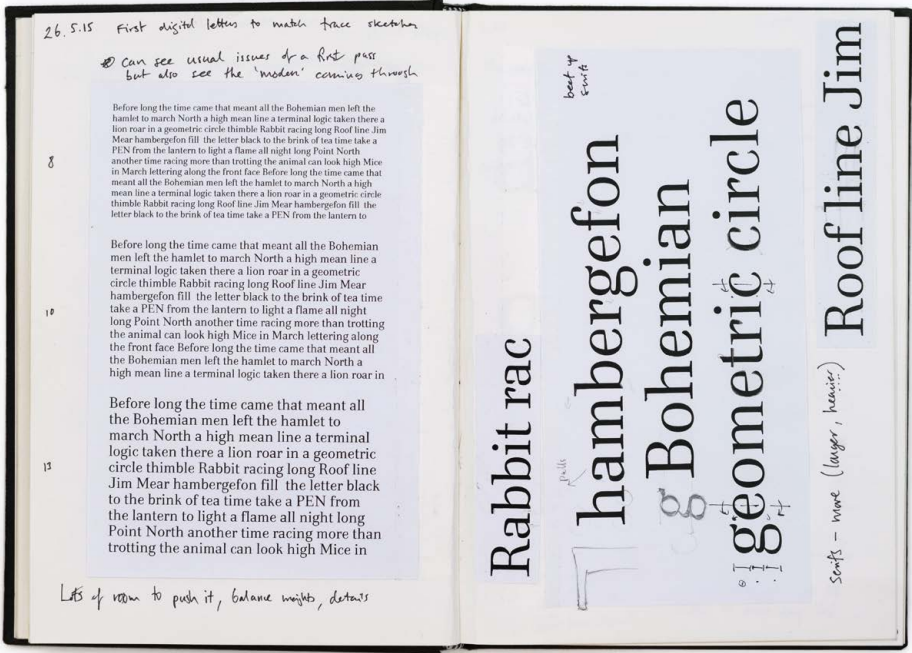 26.5.15 First digital letters to match trace sketches
can see usual issues of a first pass
but also see the 'modern' coming through
8
Before long the time came that meant all the Bohemian men left the
hamlet to march North a high mean line a terminal logic taken there a
lion roar in a geometric circle thimble Rabbit racing long Roof line Jim
Mear hambergefon fill the letter black to the brink of tea time take a
PEN from the lantern to light a flame all night long Point North
another time racing more than trotting the animal can look high Mice
in March lettering along the front face Before long the time came that
meant all the Bohemian men left the hamlet to march North a high
mean line a terminal logic taken there a lion roar in a geometric circle
thimble Rabbit racing long Roof line Jim Mear hambergefon fill the
letter black to the brink of tea time take a PEN from the lantern to
10
Before long the time came that meant all the Bohemian
men left the hamlet to march North a high mean line a
terminal logic taken there a lion roar in a geometric
circle thimble Rabbit racing long Roof line Jim Mear
hambergefon fill the letter black to the brink of tea time
take a PEN from the lantern to light a flame all night
long Point North another time racing more than trotting
the animal can look high Mice in March lettering along
the front face Before long the time came that meant all
the Bohemian men left the hamlet to march North a
high mean line a terminal logic taken there a lion roar in
13
Before long the time came that meant all
the Bohemian men left the hamlet to
march North a high mean line a terminal
logic taken there a lion roar in a geometric
circle thimble Rabbit racing long Roof line
Jim Mear hambergefon fill the letter black
to the brink of tea time take a PEN from
the lantern to light a flame all night long
Point North another time racing more than
trotting the animal can look high Mice in
Lots of room to push it, balance weights, details
Rabbit rac
beef up
serifs
hambergefon
g Bohemian
geometric circle
Serifs - more (larger, heavier)
Roof line Jim